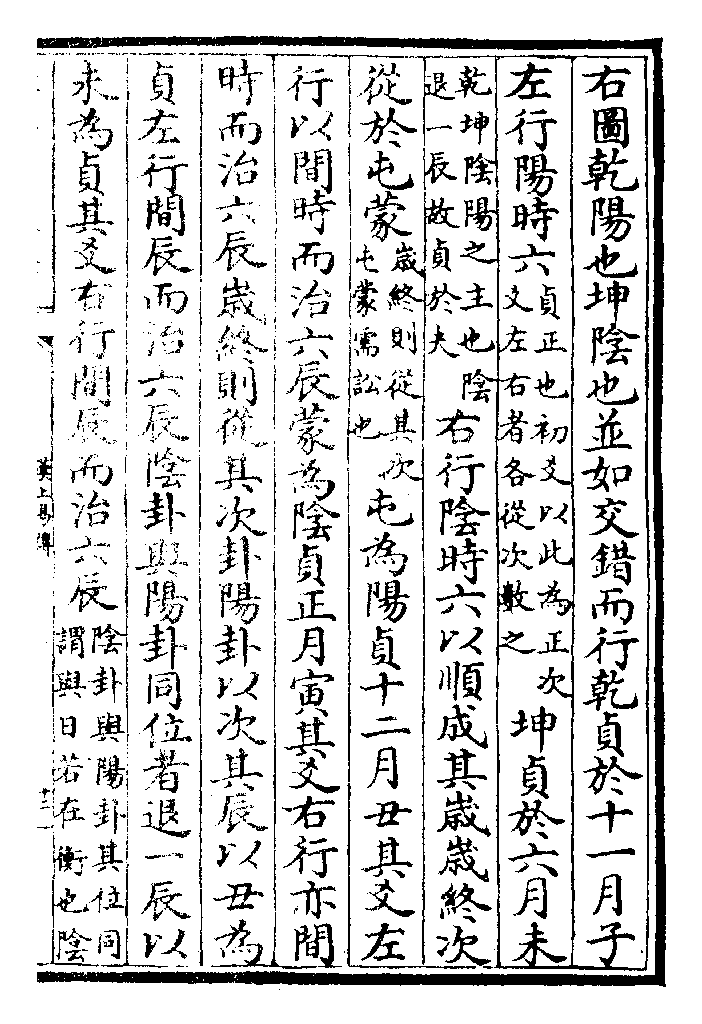 右圖乾陽也坤陰也並如交錯而行乾貞於十一月子
左行陽時六貞正也初爻以此為正次爻左右者各從次數之坤貞於六月未
乾坤陰陽之主也陰退一辰故貞於未右行陰時六以順成其歲歲終次
從於屯蒙歲終則從其次屯蒙需訟也屯為陽貞十二月丑其爻左
行以間時而治六辰蒙為陰貞正月寅其爻右行亦間
時而治六辰歲終則從其次卦陽卦以次其辰以丑為
貞左行間辰而治六辰陰卦與陽卦同位者退一辰以
未為貞其爻右行間辰而治六辰陰卦與陽卦其位同謂與日若在衡也陰
漢上易傳
十二